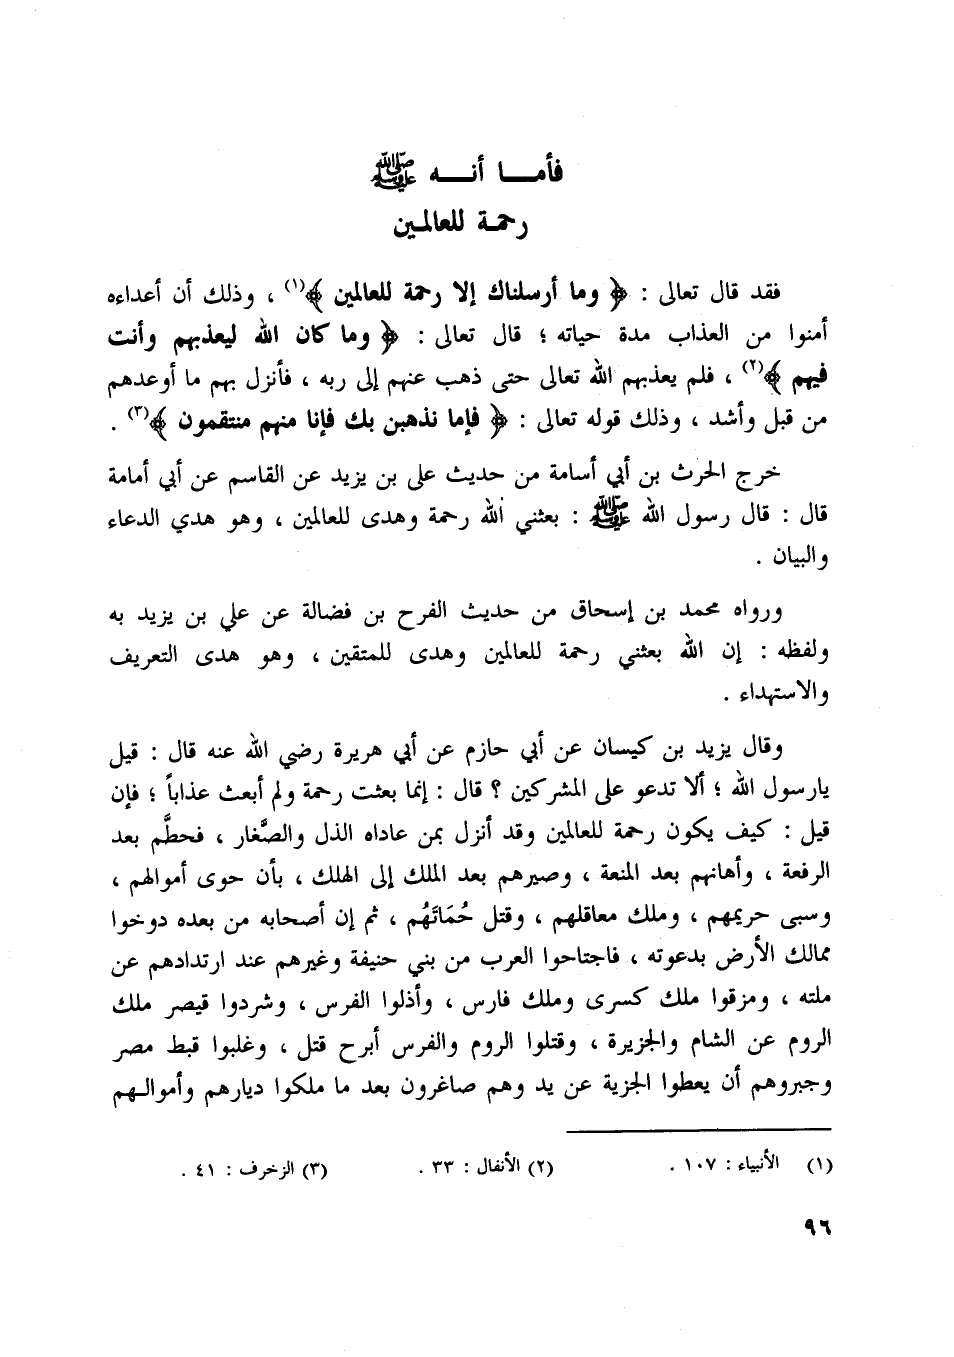 فأمـــا أنـــه ﷺ
رحمـة للعالمـين
فقد قال تعالى : ﴿ وما أرسلناك إلا رحمة للعالمين ﴾(١) ، وذلك أن أعداءه
أمنوا من العذاب مدة حياته ؛ قال تعالى : ﴿ وما كان الله ليعذبهم وأنت
فيهم ﴾(٢) ، فلم يعذبهم الله تعالى حتى ذهب عنهم إلى ربه ، فأنزل بهم ما أوعدهم
من قبل وأشد ، وذلك قوله تعالى : ﴿ فإما نذهبن بك فإنا منهم منتقمون ﴾(٣) .
خرج الحرث بن أبي أسامة من حديث علي بن يزيد عن القاسم عن أبي أمامة
قال : قال رسول الله ﷺ : بعثني الله رحمة وهدى للعالمين ، وهو هدي الدعاء
والبيان .
ورواه محمد بن إسحاق من حديث الفرح بن فضالة عن علي بن يزيد به
ولفظه : إن الله بعثني رحمة للعالمين وهدى للمتقين ، وهو هدى التعريف
والاستهداء .
وقال يزيد بن كيسان عن أبي حازم عن أبي هريرة رضي الله عنه قال : قيل
يارسول الله ؛ ألا تدعو على المشركين ؟ قال : إنما بعثت رحمة ولم أبعث عذاباً ؛ فإن
قيل : كيف يكون رحمة للعالمين وقد أنزل بمن عاداه الذل والصَّغار ، فحطَّم بعد
الرفعة ، وأهانهم بعد المنعة ، وصيرهم بعد الملك إلى الهلك ، بأن حوى أموالهم ،
وسبى حريمهم ، وملك معاقلهم ، وقتل حُمَاتَهُم ، ثم إن أصحابه من بعده دوخوا
ممالك الأرض بدعوته ، فاجتاحوا العرب من بني حنيفة وغيرهم عند ارتدادهم عن
ملته ، ومزقوا ملك كسرى وملك فارس ، وأذلوا الفرس ، وشردوا قيصر ملك
الروم عن الشام والجزيرة ، وقتلوا الروم والفرس أبرح قتل ، وغلبوا قبط مصر
وجبروهم أن يعطوا الجزية عن يد وهم صاغرون بعد ما ملكوا ديارهم وأموالـهم
(١) الأنبياء : ١٠٧ . (٢) الأنفال : ٣٣ . (٣) الزخرف : ٤١ .
٩٦